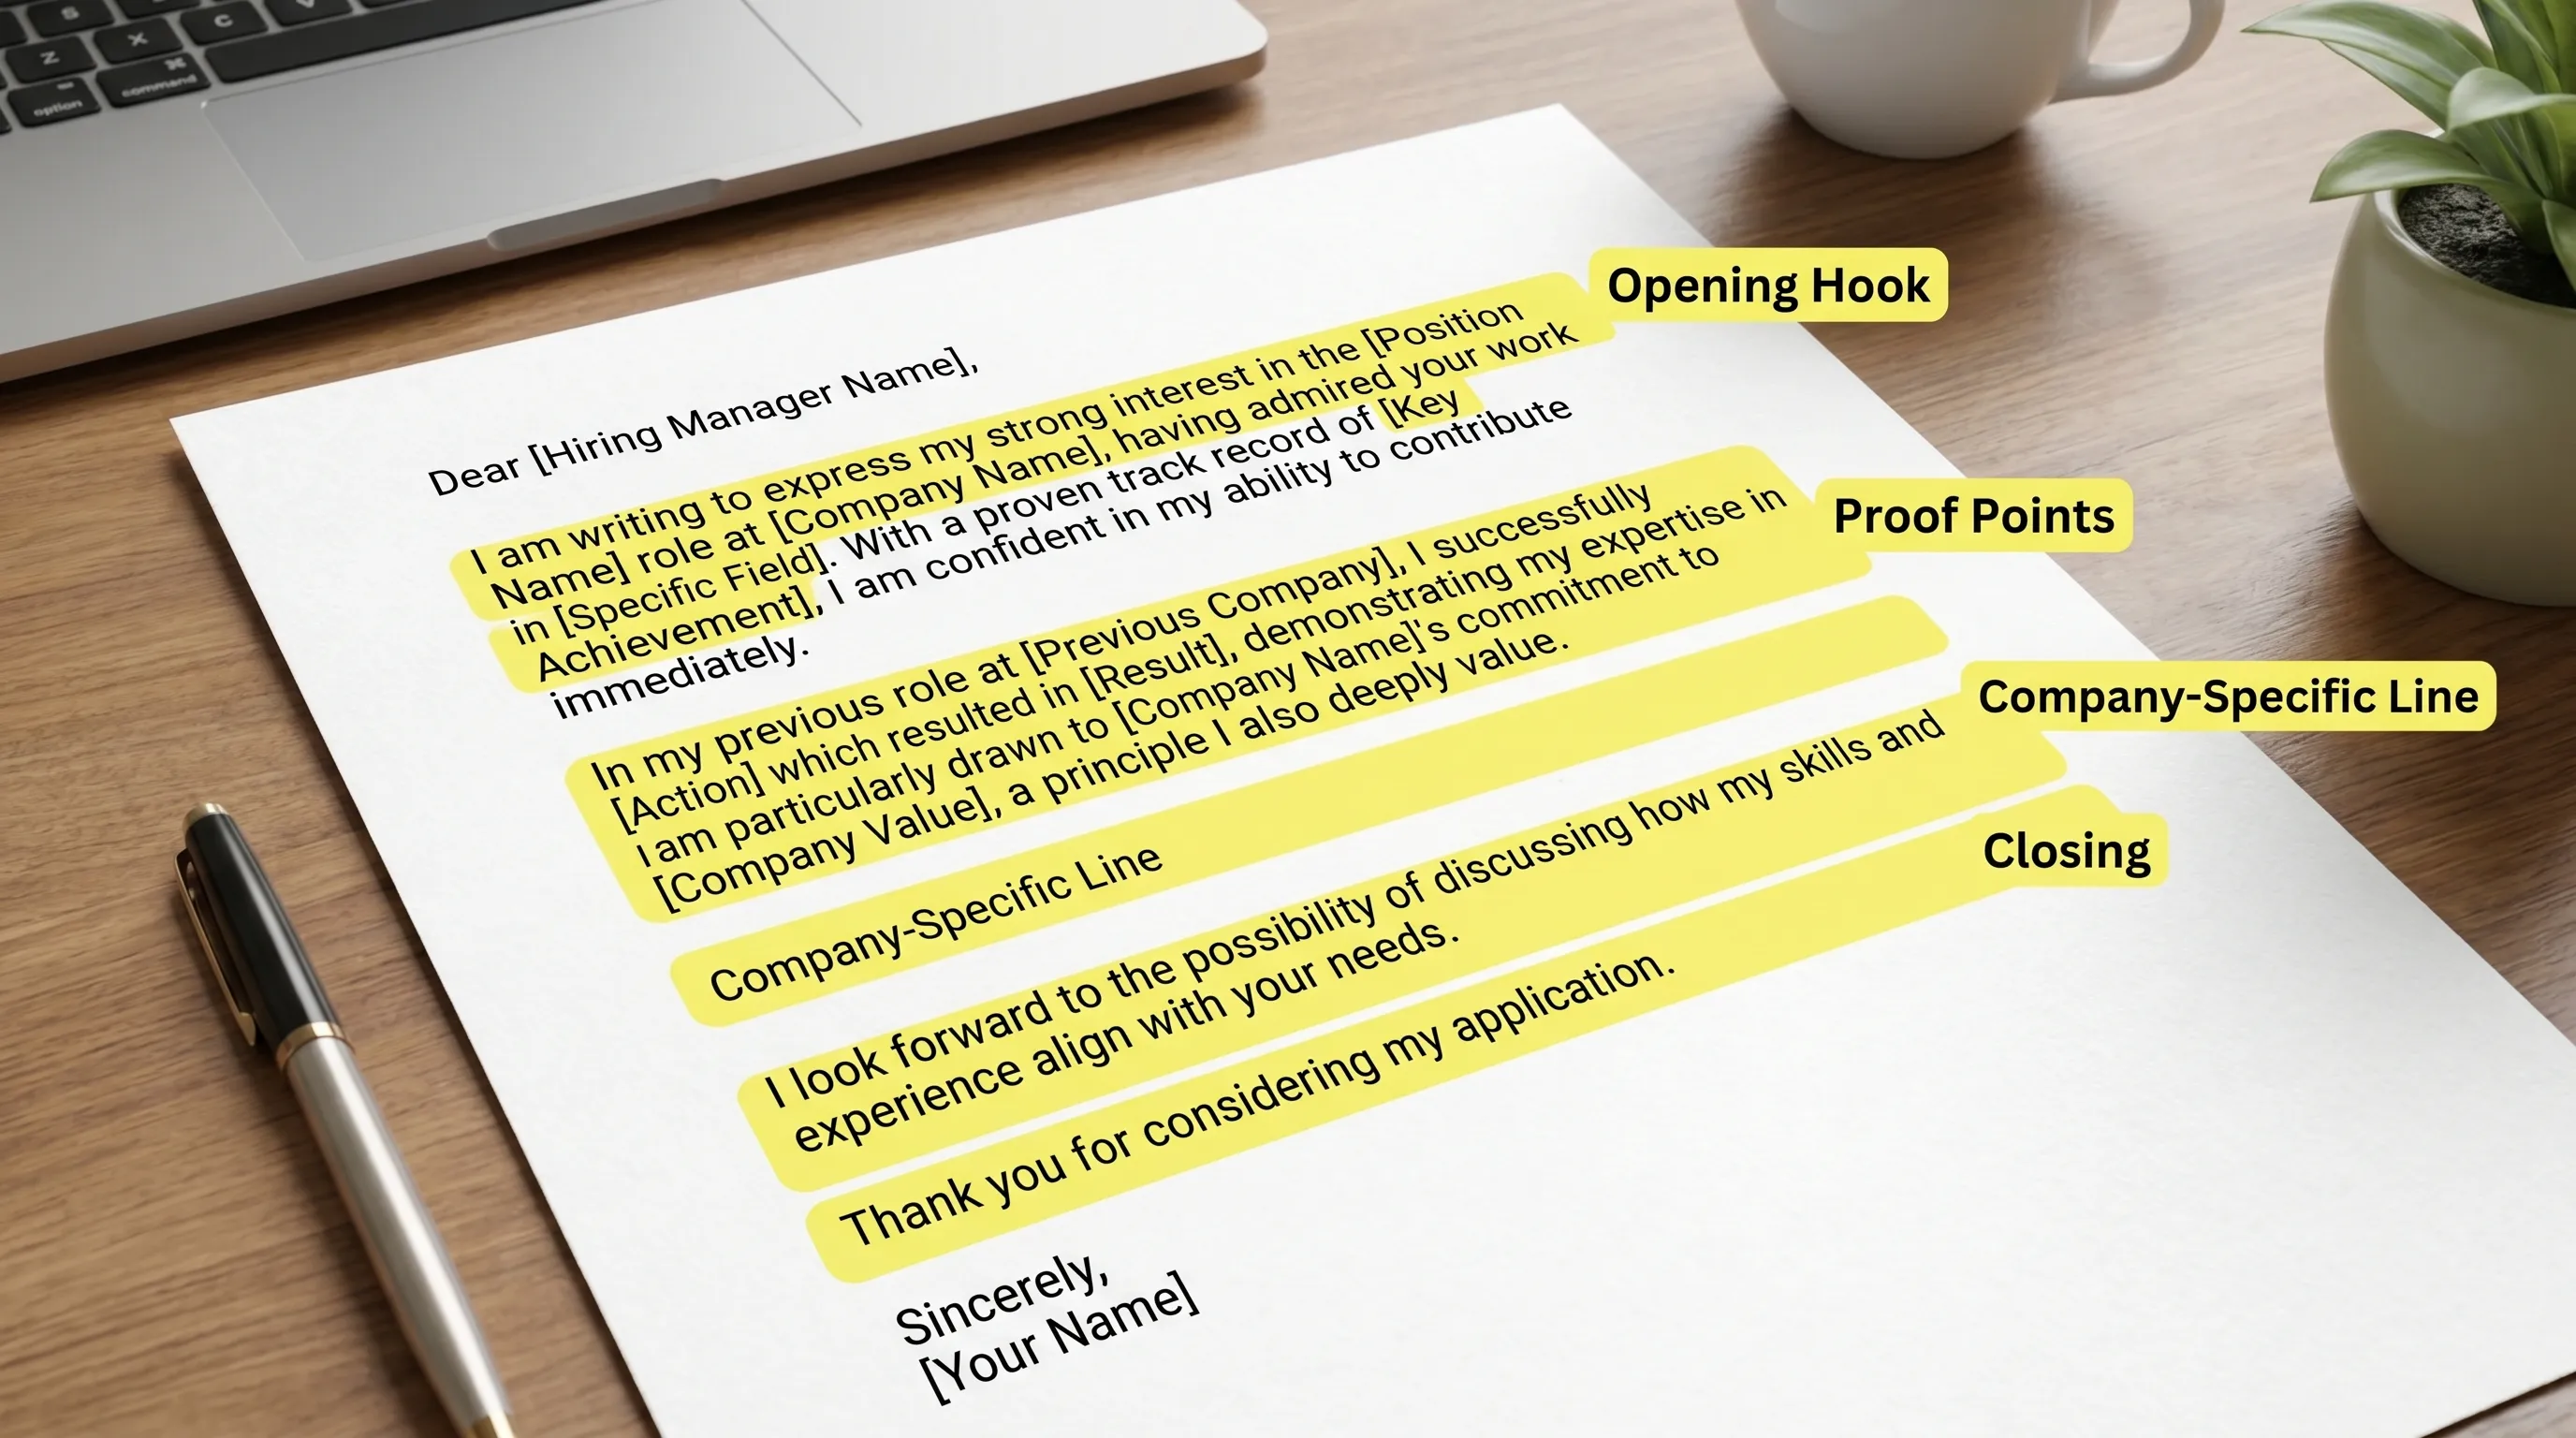 S
C
V
Z
X
⌘
option
command
Dear [Hiring Manager Name],
I am writing to express my strong interest in the [Position
Name] role at [Company Name], having admired your work
in [Specific Field]. With a proven track record of [Key
Achievement], I am confident in my ability to contribute
immediately.
Opening Hook
In my previous role at [Previous Company], I successfully
[Action] which resulted in [Result], demonstrating my expertise in
I am particularly drawn to [Company Name]'s commitment to
[Company Value], a principle I also deeply value.
Proof Points
Company-Specific Line
Company-Specific Line
I look forward to the possibility of discussing how my skills and
experience align with your needs.
Thank you for considering my application.
Closing
Sincerely,
[Your Name]